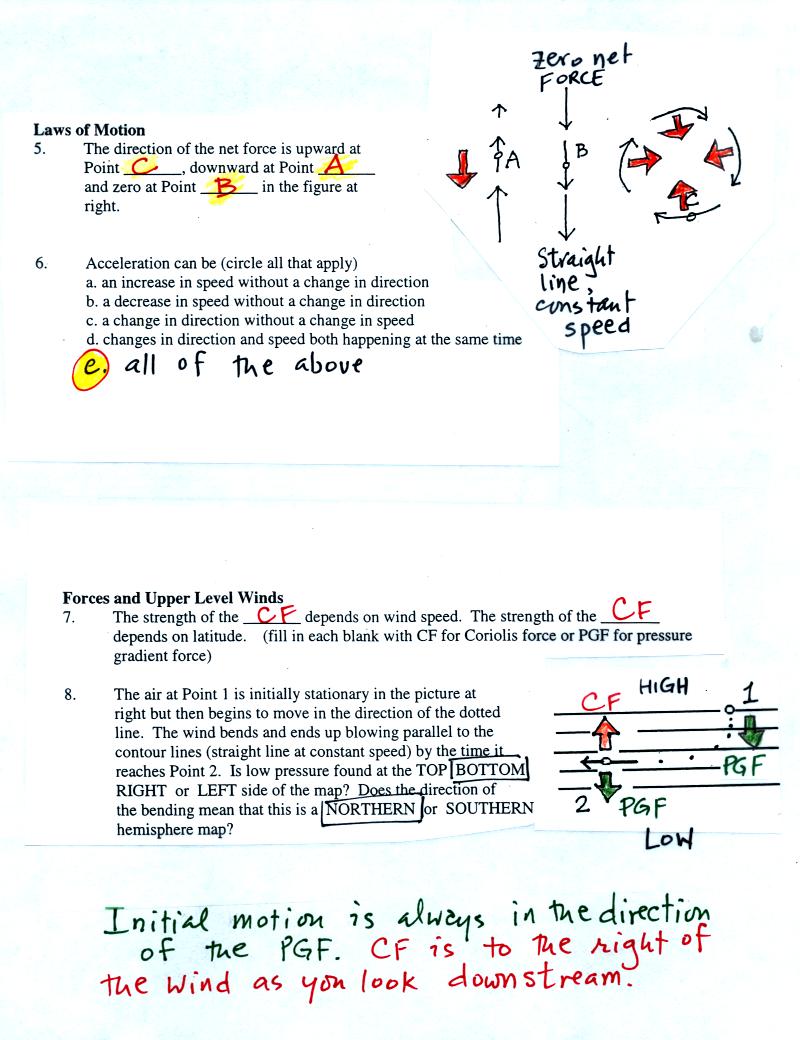 zero net
FORCE
Laws of Motion
5. The direction of the net force is upward at
Point C, downward at Point A
and zero at Point B in the figure at
right.
A
B
C
Straight
line,
constant
speed
6. Acceleration can be (circle all that apply)
a. an increase in speed without a change in direction
b. a decrease in speed without a change in direction
c. a change in direction without a change in speed
d. changes in direction and speed both happening at the same time
e. all of the above
Forces and Upper Level Winds
7. The strength of the CF depends on wind speed. The strength of the CF
depends on latitude. (fill in each blank with CF for Coriolis force or PGF for pressure
gradient force)
8. The air at Point 1 is initially stationary in the picture at
right but then begins to move in the direction of the dotted
line. The wind bends and ends up blowing parallel to the
contour lines (straight line at constant speed) by the time it
reaches Point 2. Is low pressure found at the TOP BOTTOM
RIGHT or LEFT side of the map? Does the direction of
the bending mean that this is a NORTHERN or SOUTHERN
hemisphere map?
CF HIGH 1
PGF
2 PGF
LOW
Initial motion is always in the direction
of the PGF. CF is to the right of
the wind as you look downstream.